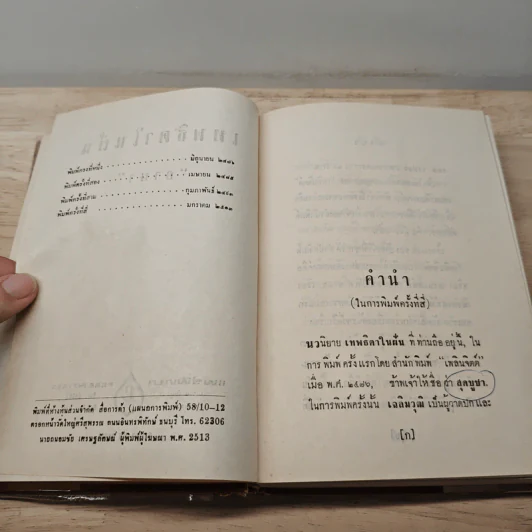 พิมพ์ครั้งที่หนึ่ง . . . . . . . . . . . . . . . . มิถุนายน ๒๔๘๖
พิมพ์ครั้งที่สอง . . . . . . . . . . . . . . . . เมษายน ๒๔๙๕
พิมพ์ครั้งที่สาม . . . . . . . . . . . . . . . . กุมภาพันธ์ ๒๔๙๓
พิมพ์ครั้งที่สี่ . . . . . . . . . . . . . . . . มกราคม ๒๕๑๓
พิมพ์ที่ห้างหุ้นส่วนจำกัด สื่อการค้า (แผนกการพิมพ์) 58/10-12
ตรอกหน้าวัดใหญ่ศรีสุพรรณ ถนนอินทรพิทักษ์ ธนบุรี โทร. 62306
นายถนอมชัย เศรษฐลัภษณ์ ผู้พิมพ์ผู้โฆษณา พ.ศ. 2513
คำนำ
(ในการพิมพ์ครั้งที่สี่)
นวนิยาย เทพธิดาในฝัน ที่ท่านถืออยู่นี้, ใน
การพิมพ์ครั้งแรกโดยสำนักพิมพ์ "เพลินจิตต์"
เมื่อ พ.ศ. ๒๔๘๖, ข้าพเจ้าให้ชื่อว่า สุดบูชา.
ในการพิมพ์ครั้งนั้น เฉลิมวุฒิ เป็นผู้วาดปก และ
[ก]